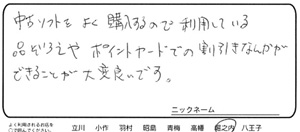 中古ソフトをよく購入するので利用している
品ぞろえやポイントカードでの割引きなんかが
できることが大変良いです。
ニックネーム
よく利用されるお店を
○で囲んでください。
立川 小作 羽村 昭島 青梅 高幡 堀之内 八王子